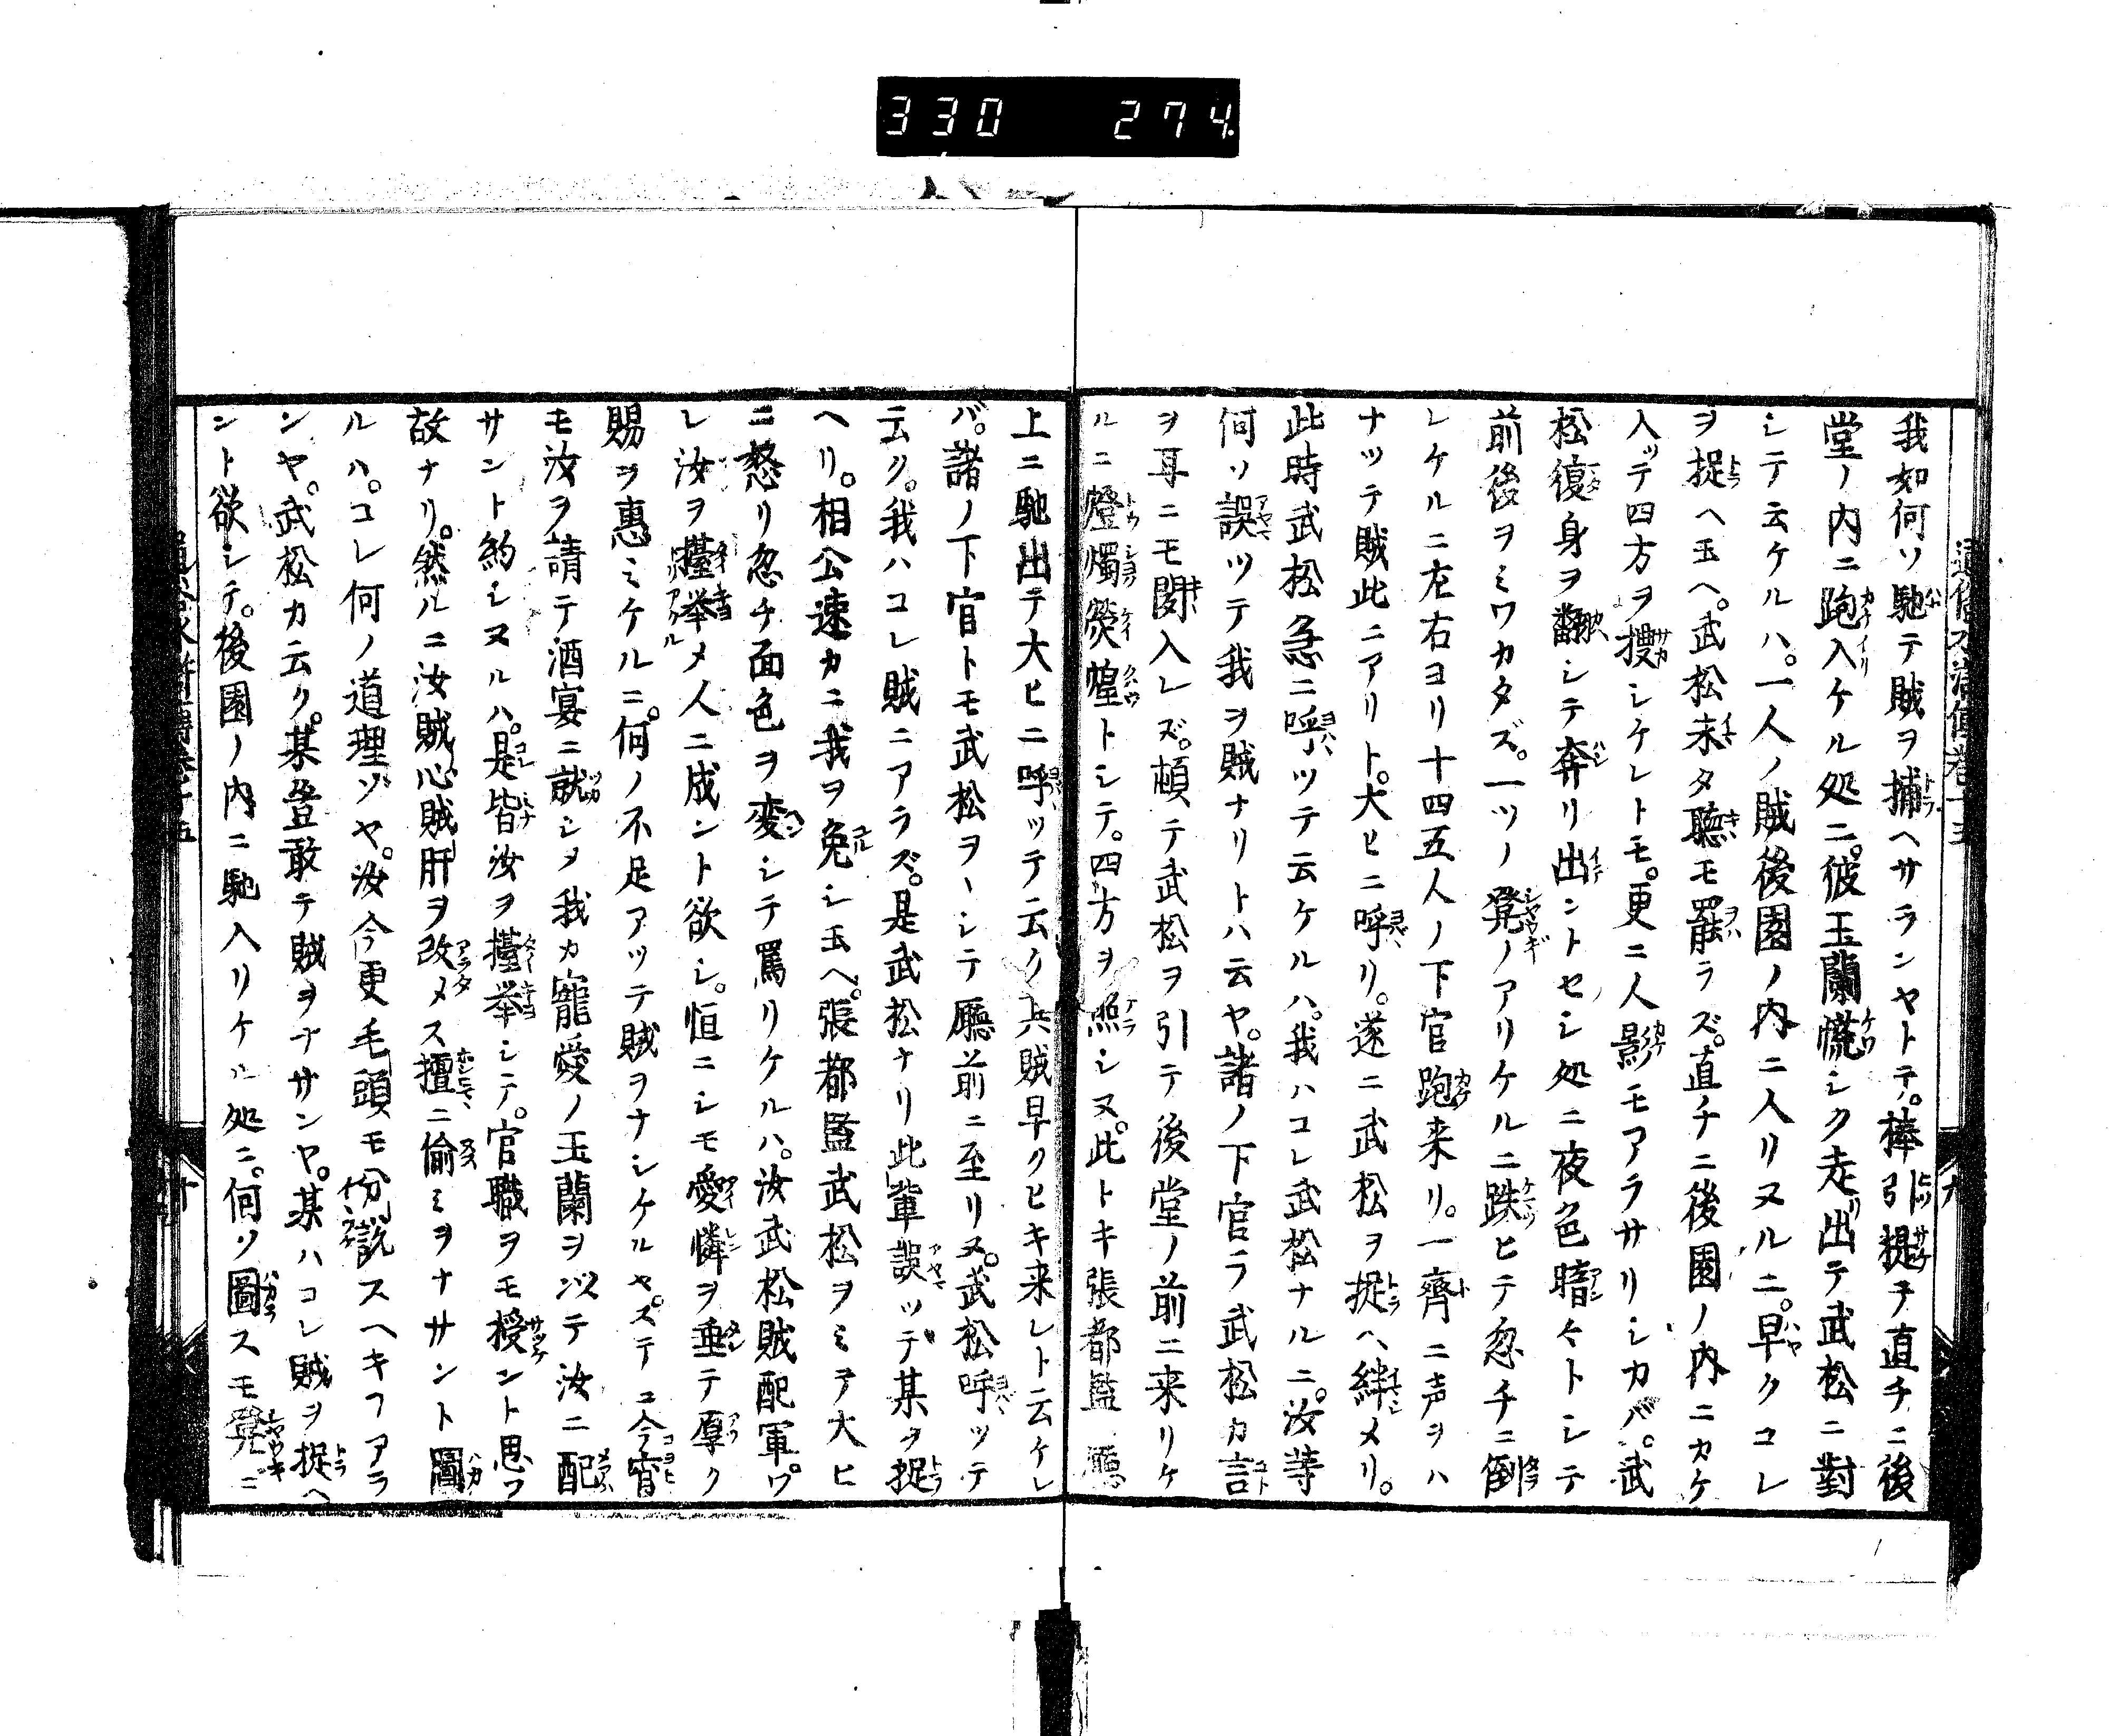 330 274
我如何ソ馳テ賊ヲ捕ヘサランヤトテ。棒引提チ直チニ後
堂ノ内ニ跑入ケル処ニ。彼玉蘭慌シク走出テ武松ニ對
シテ云ケルハ。一人ノ賊後園ノ内ニ入リヌルニ。早クコレ
ヲ捉ヘ玉ヘ。武松未タ聽モ罷ラズ。直チニ後園ノ内ニカケ
入ッテ四方ヲ搜シケレトモ。更ニ人影モアラサリシカバ。武
松復身ヲ翻シテ奔リ出ントセシ処ニ夜色暗々トシテ
前後ヲミワカタズ。一ツノ凳ノアリケルニ跌ヒテ忽チニ倒
レケルニ左右ヨリ十四五人ノ下官跑来リ。一齊ニ声ヲハ
ナッテ賊此ニアリト。大ヒニ呼リ。遂ニ武松ヲ捉ヘ綁メリ。
此時武松急ニ呼ツテ云ケルハ。我ハコレ武松ナルニ。汝等
何ソ誤ツテ我ヲ賊ナリトハ云ヤ。諸ノ下官ラ武松カ言
ヲ耳ニモ聞入レズ。頓テ武松ヲ引テ後堂ノ前ニ来リケ
ルニ燈燭熒煌トシテ。四方ヲ照シヌ。此トキ張都監廳
上ニ馳出テ大ヒニ呼ッテ云ク其賊早クヒキ来レト云ケレ
バ。諸ノ下官トモ武松ヲヽシテ廳前ニ至リヌ。武松呼ッテ
云ク。我ハコレ賊ニアラズ。是武松ナリ此輩誤ッデ某ヲ捉
ヘリ。相公速カニ我ヲ免シ玉ヘ。張都監武松ヲミテ大ヒ
ニ怒リ忽チ面色ヲ変シテ罵リケルハ。汝武松賊配軍。ワ
レ汝ヲ擡舉メ人ニ成ント欲シ。恒ニシモ愛憐ヲ垂テ厚ク
賜ヲ惠ミケルニ。何ノ不足アッテ賊ヲナシケルヤ。ステニ今宵
モ汝ヲ請テ酒宴ニ就シメ我カ寵愛ノ玉蘭ヲ以テ汝ニ配
サント約シヌルハ。是皆汝ヲ擡举シテ。官職ヲモ授ント思フ
故ナリ。然ルニ汝賊心賊肝ヲ改メス擅ニ偷ミヲナサント圖
ルハ。コレ何ノ道理ゾヤ。汝今更毛頭モ分説スヘキフアラ
ンヤ。武松カ云ク。某豈敢テ賊ヲナサンヤ。某ハコレ賊ヲ捉ヘ
ント欲シテ。後園ノ内ニ馳入リケル処ニ。何ソ圖スモ凳ニ